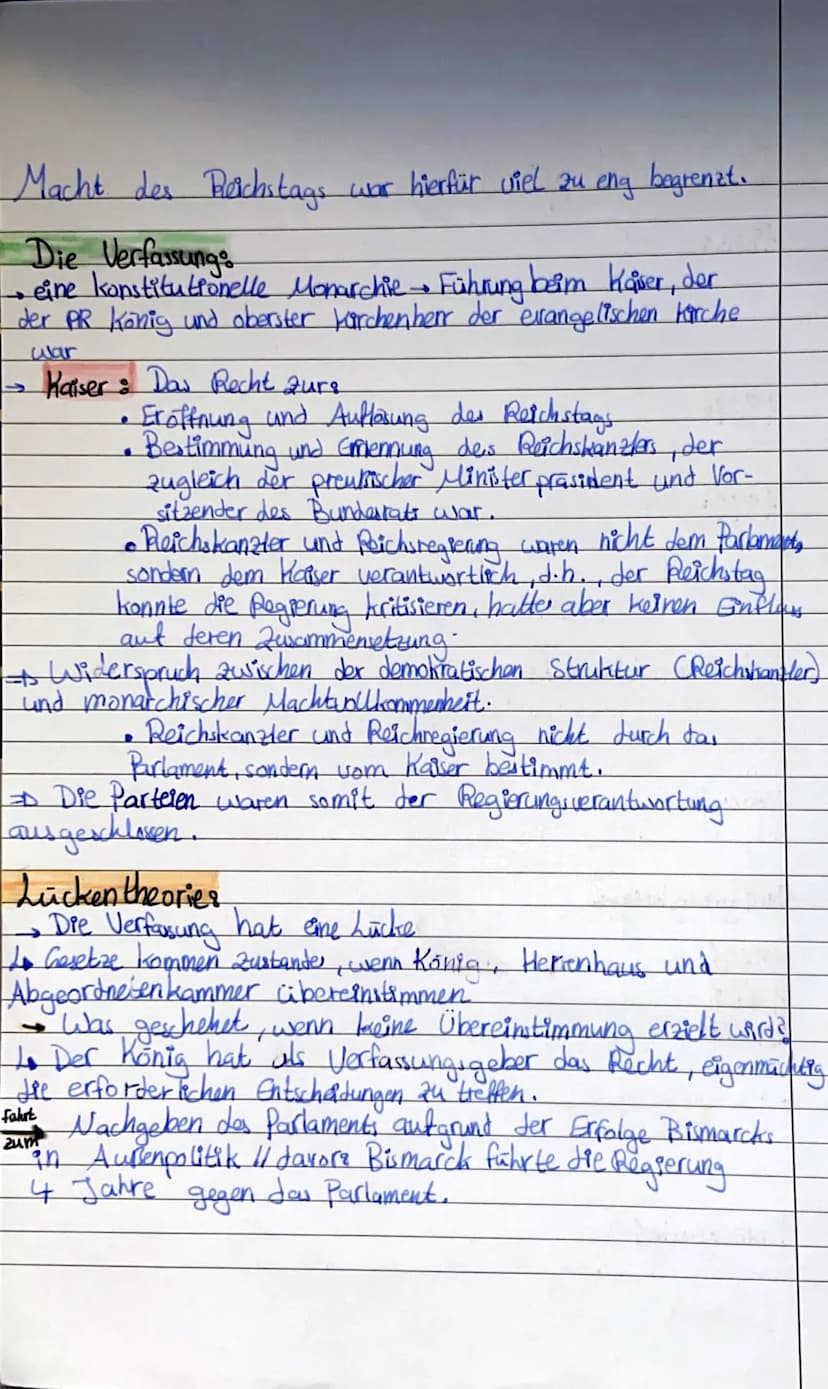 Macht des Reichstags war hierfür viel zu eng begrenzt.
Die Verfassung:
→ eine konstitutionelle Monarchie → Führung beim Kaiser, der
der PR König und oberster Kirchenherr der evangelischen Kirche
war
→ Kaiser: Das Recht zur:
• Eröffnung und Auflösung des Reichstags
• Bestimmung und Ernennung des Reichskanzlers, der
zugleich der preußischer Ministerpräsident und Vor-
sitzender des Bundesrats war.
• Reichskanzler und Reichsregierung waren nicht dem Parlament,
sondern dem Kaiser verantwortlich, d.h., der Reichstag
konnte die Regierung kritisieren, hatte aber keinen Einfluss
auf deren Zusammensetzung.
⇒ Widerspruch zwischen der demokratischen Struktur (Reichskanzler)
und monarchischer Machtvollkommenheit.
• Reichskanzler und Reichregierung nicht durch das
Parlament, sondern vom Kaiser bestimmt.
⇒ Die Parteien waren somit der Regierungsverantwortung
ausgeschlossen.
Lückentheorie:
→ Die Verfassung hat eine Lücke
↳ Gesetze kommen zustande, wenn König, Herrenhaus und
Abgeordnetenkammer übereinstimmen
→ Was geschehet, wenn keine Übereinstimmung erzielt wird?
↳ Der König hat als Verfassungsgeber das Recht, eigenmächtig
die erforderlichen Entscheidungen zu treffen.
fährt zum → Nachgeben des Parlaments aufgrund der Erfolge Bismarcks
in Außenpolitik // davor: Bismarck führte die Regierung
4 Jahre gegen das Parlament.